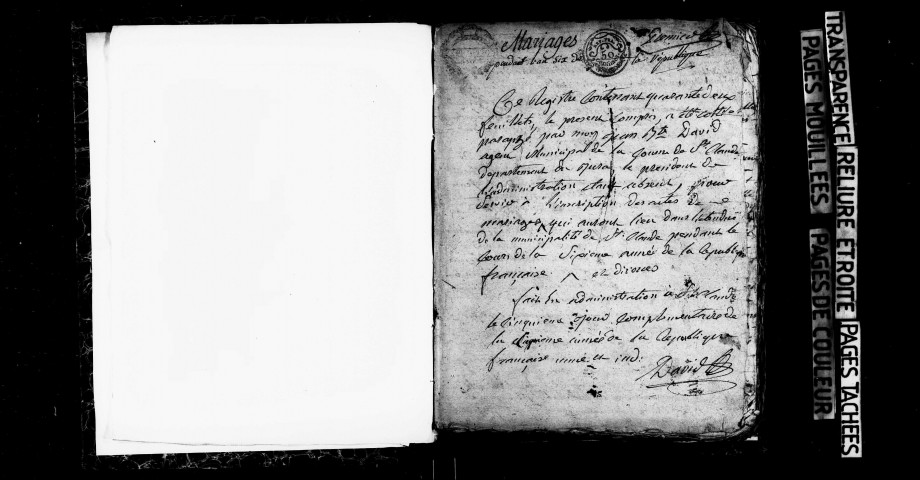 Mariages
pendant l'an six de la République
Ce Registre Contenant quarante deux
feuillets, le present Compris, a été cotté
paraphé par moy Jean Bte David
agent Municipal de la Comune de St Claude
departement du Jura le president de
l'administration etant absent, pour
servir a l'inscription des actes de
mariages qui auront lieu dans
de la municipalité de St Claude pendant le
Cours de la Sixieme année de la Republique
française. ^ et divorces
fait en administration a St Claude
le Cinquieme jour Complementaire de
la année de la Republique
française une et ind.
David
TRANSPARENCE RELIURE ETROITE PAGES TACHEES
PAGES MOUILLEES PAGES DE COULEUR